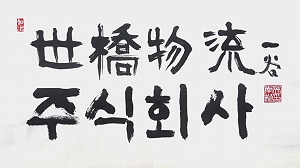 世橋物流 一谷
주식회사